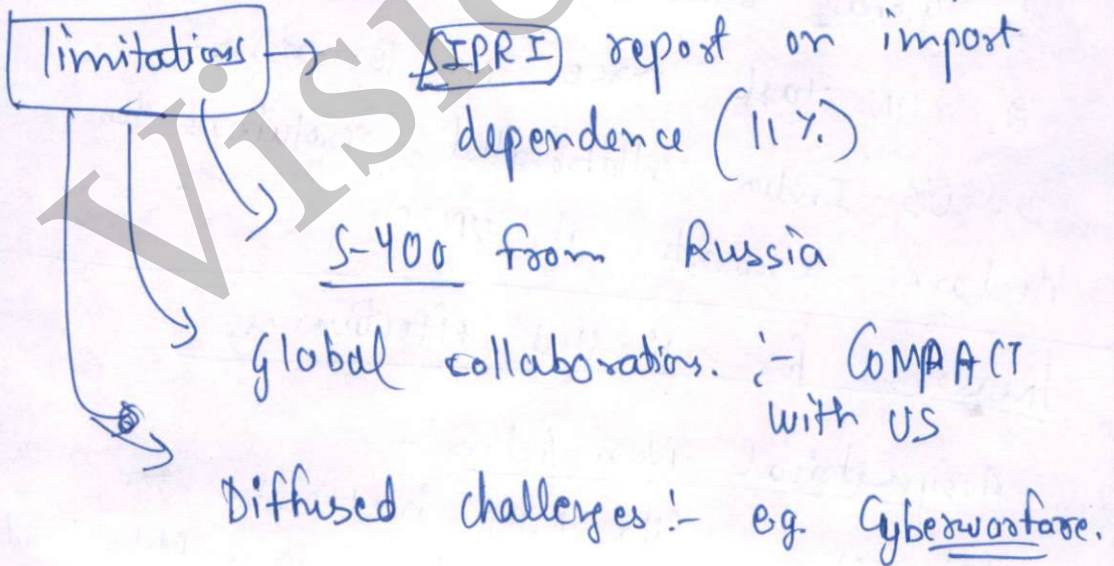 limitations → SIPRI report on import
dependence (11%)
S-400 from Russia
Global collaborations. :- COMPACT
with US
Diffused challenges :- eg. Cyberwarfare.